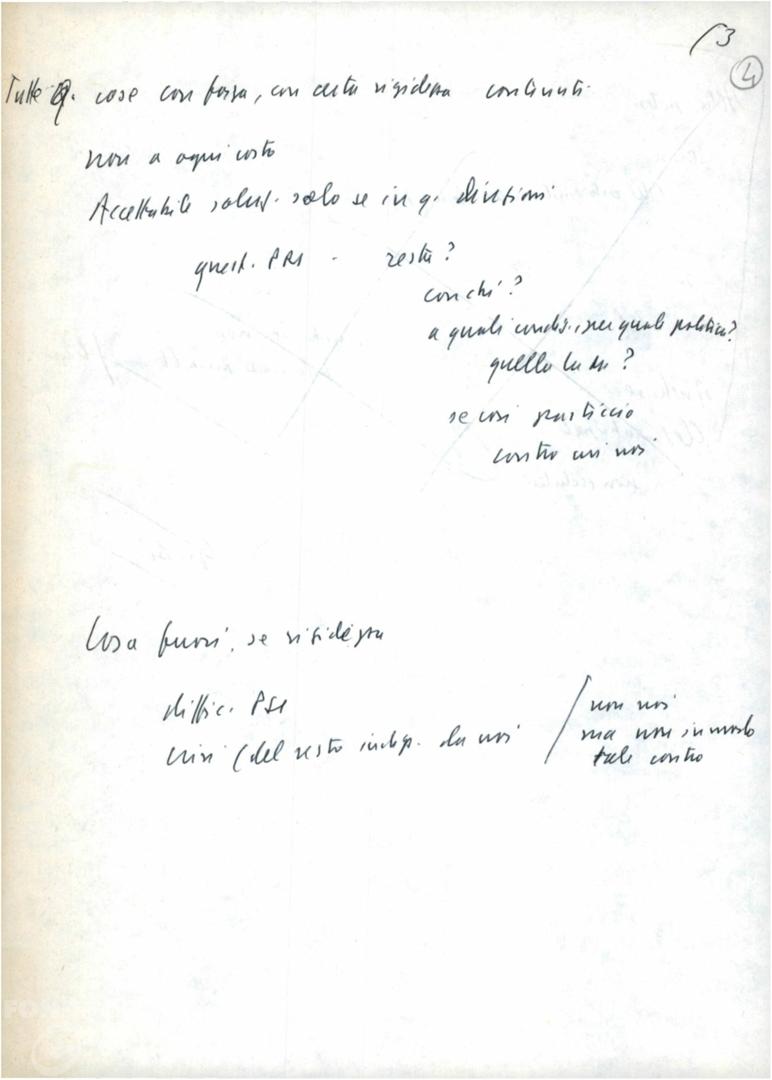 3
4
Tutte q. cose con forza, con certa rigidezza continuati
non a ogni costo
Accettabile soluz. solo se in q. direzioni
quest. PRI - resta?
con chi?
a quali condiz., per quale politica?
quella la
se così pasticcio
contro noi
Cosa fuori, se rigidezza
diffic. PSI
crisi (del resto indip. da noi
/ non noi
ma non in modo
tale contro